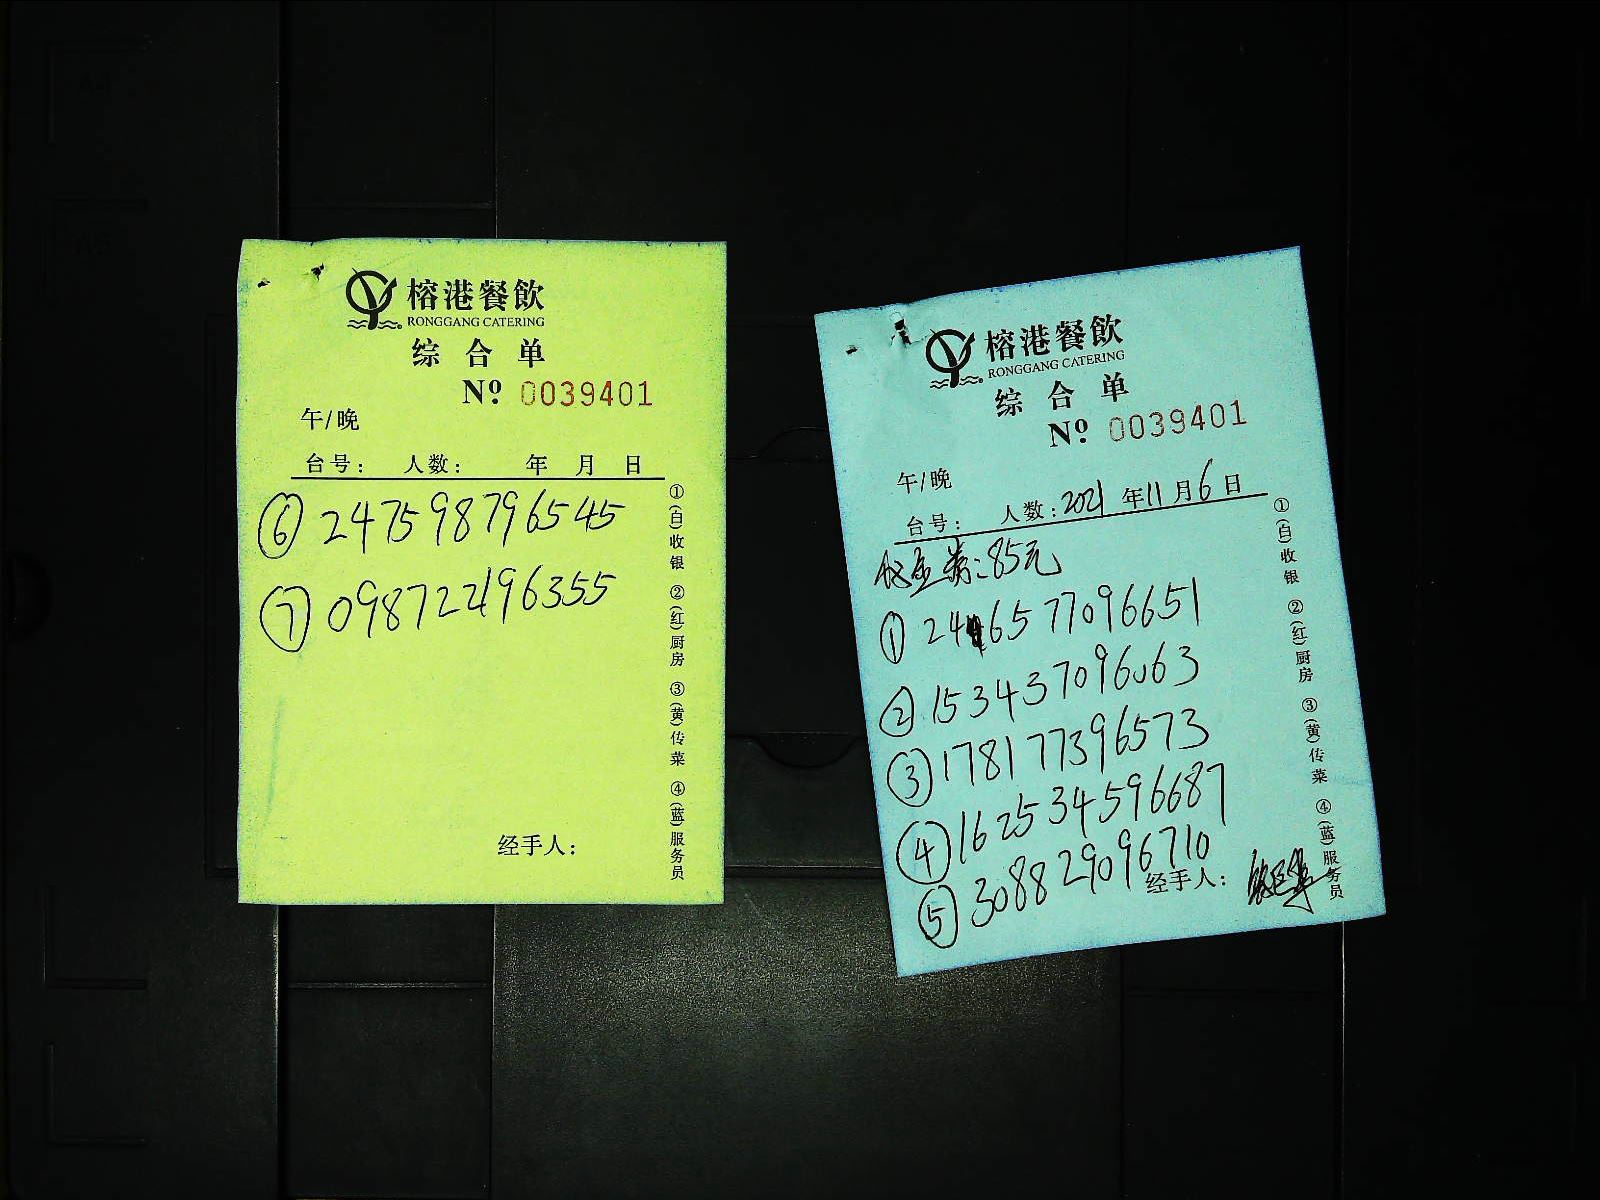 榕港餐飲
RONGGANG CATERING
综合单
Nº 0039401
午/晚
台号： 人数： 年 月 日
⑥ 247598796545
⑦ 098722196355
经手人：
①(白)收银 ②(红)厨房 ③(黄)传菜 ④(蓝)服务员
榕港餐飲
RONGGANG CATERING
综合单
Nº 0039401
午/晚
台号： 人数： 2021 年 11 月 6 日
：85元
① 246577096651
② 153437096063
③ 178177396573
④ 162534596687
⑤ 308829096710
经手人：
①(白)收银 ②(红)厨房 ③(黄)传菜 ④(蓝)服务员